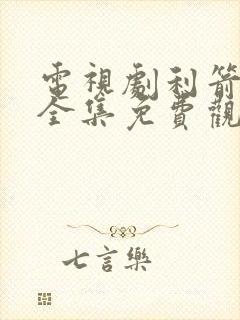 電視劇利箭
全集免費觀
七言樂